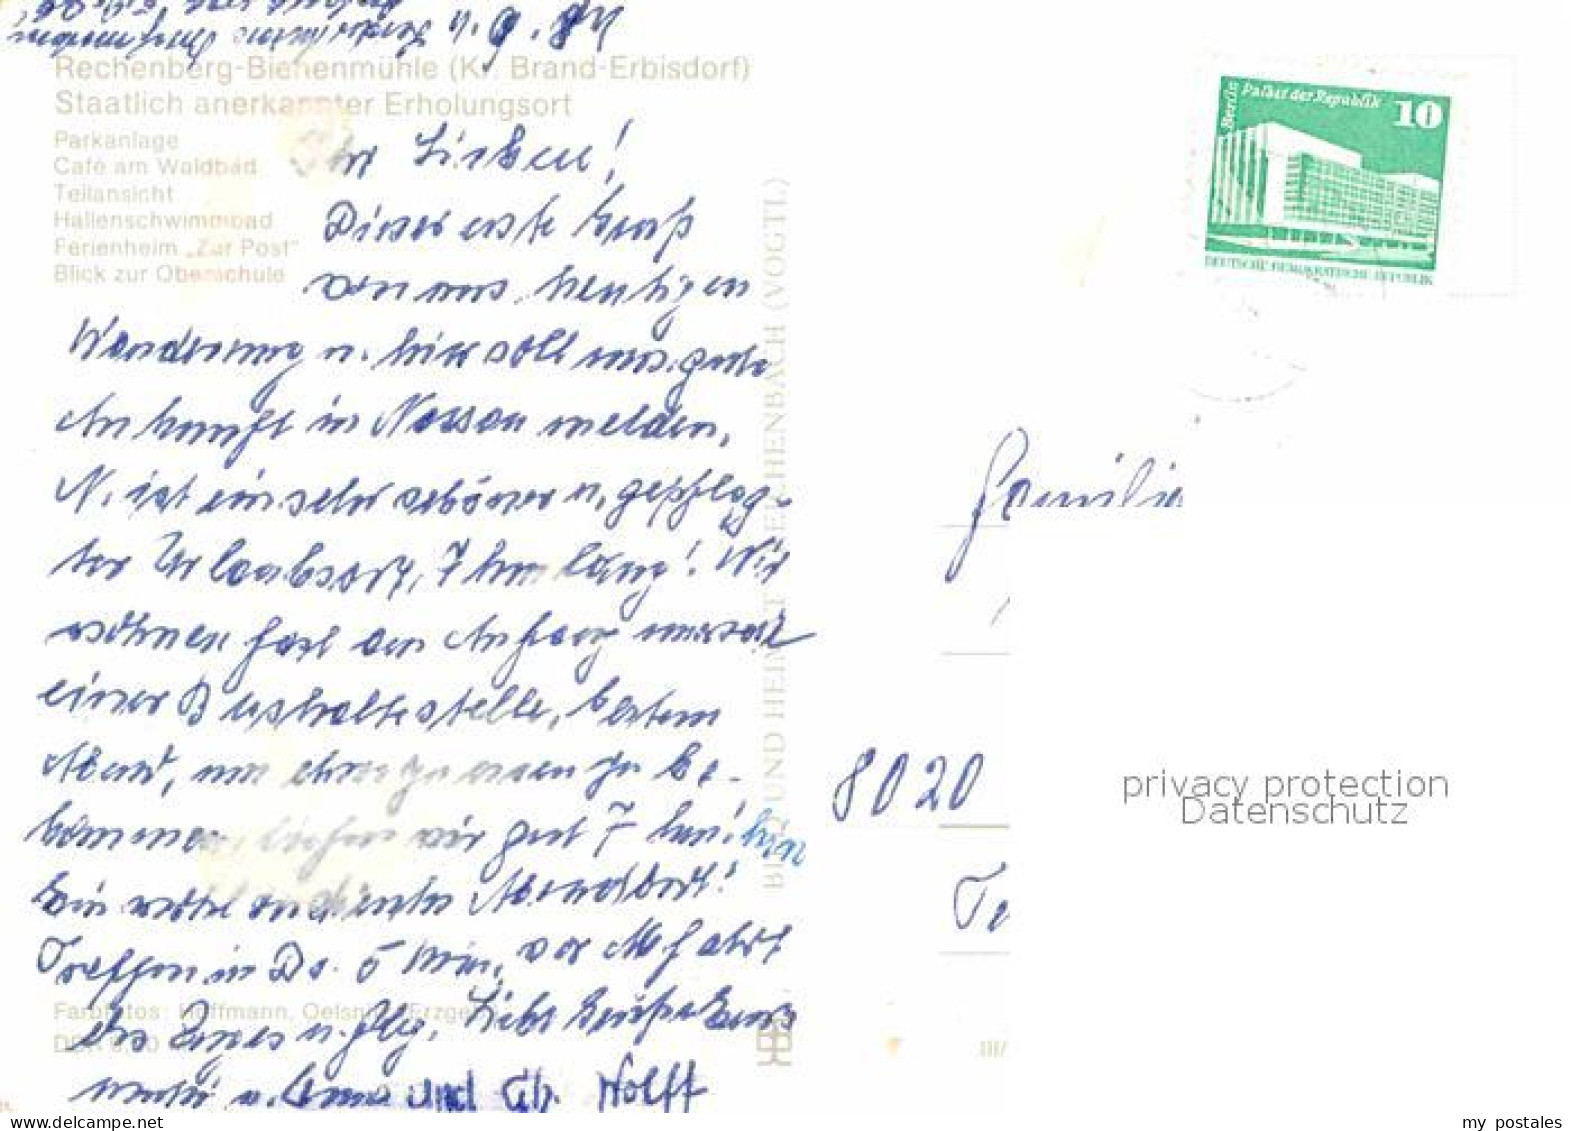 Rechenberg-Bienenmühle (Kr. Brand-Erbisdorf)
Staatlich anerkannter Erholungsort
Parkanlage
Café am Waldbad
Teilansicht
Hallenschwimmbad
Ferienheim „Zur Post"
Blick zur Oberschule
Ihr Lieben!
Dieser erste Gruß
von uns. heutigen
Wanderung u. hier soll uns. gute
Ankunft in Nassau melden.
N. ist ein sehr schöner u. gepfleg-
ter Urlaubsort, 7 km lang! Wir
wohnen fast am Anfang unweit
einer Bushaltestelle, gestern
Abend, um etwas zu essen zu be-
kommen, liefen wir gut 7 km! hin
Ein wohlverdientes Abendbrot!
Treffen in Do. 5 Min. vor Abfahrt
des Zuges u.
Liebe Grüße
u. und Ch. Wolff
Farbfotos: Hoffmann, Oelsnitz (Erzgeb.)
BILD UND HEIMAT REICHENBACH (VOGTL.)
Berlin Palast der Republik 10
DEUTSCHE DEMOKRATISCHE REPUBLIK
Familie
8020
privacy protection
Datenschutz
my postales